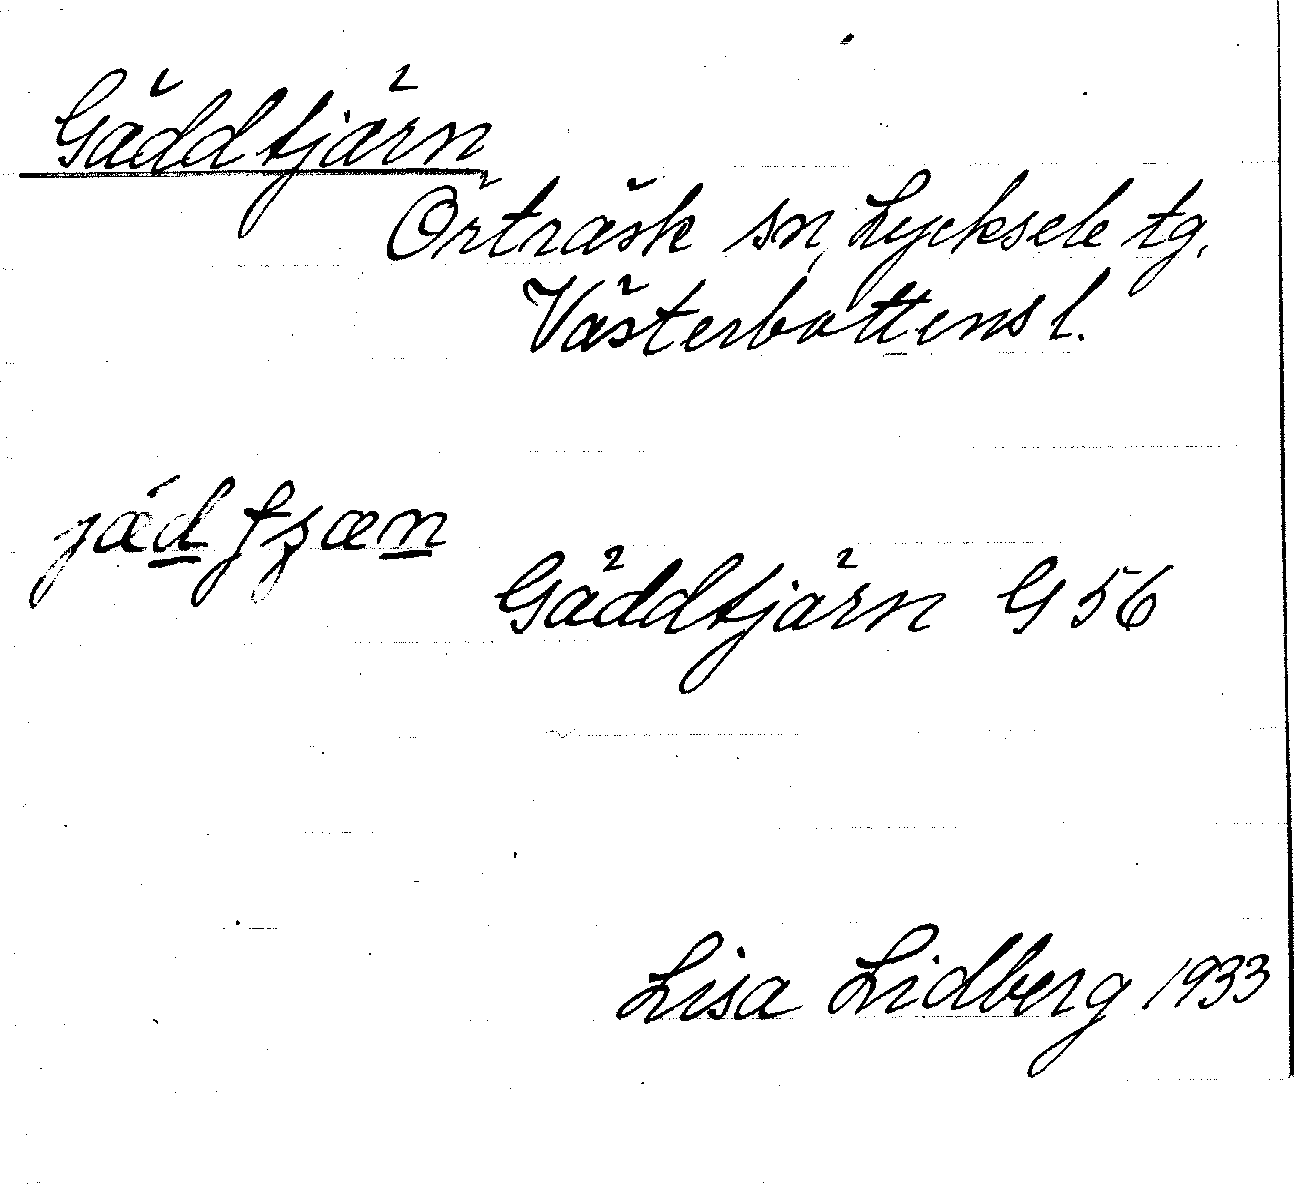 Gäddtjärn
Örträsk sn, Lycksele tg.
Västerbottens l.
Gäddtjärn G 56
Lisa Lidberg 1933